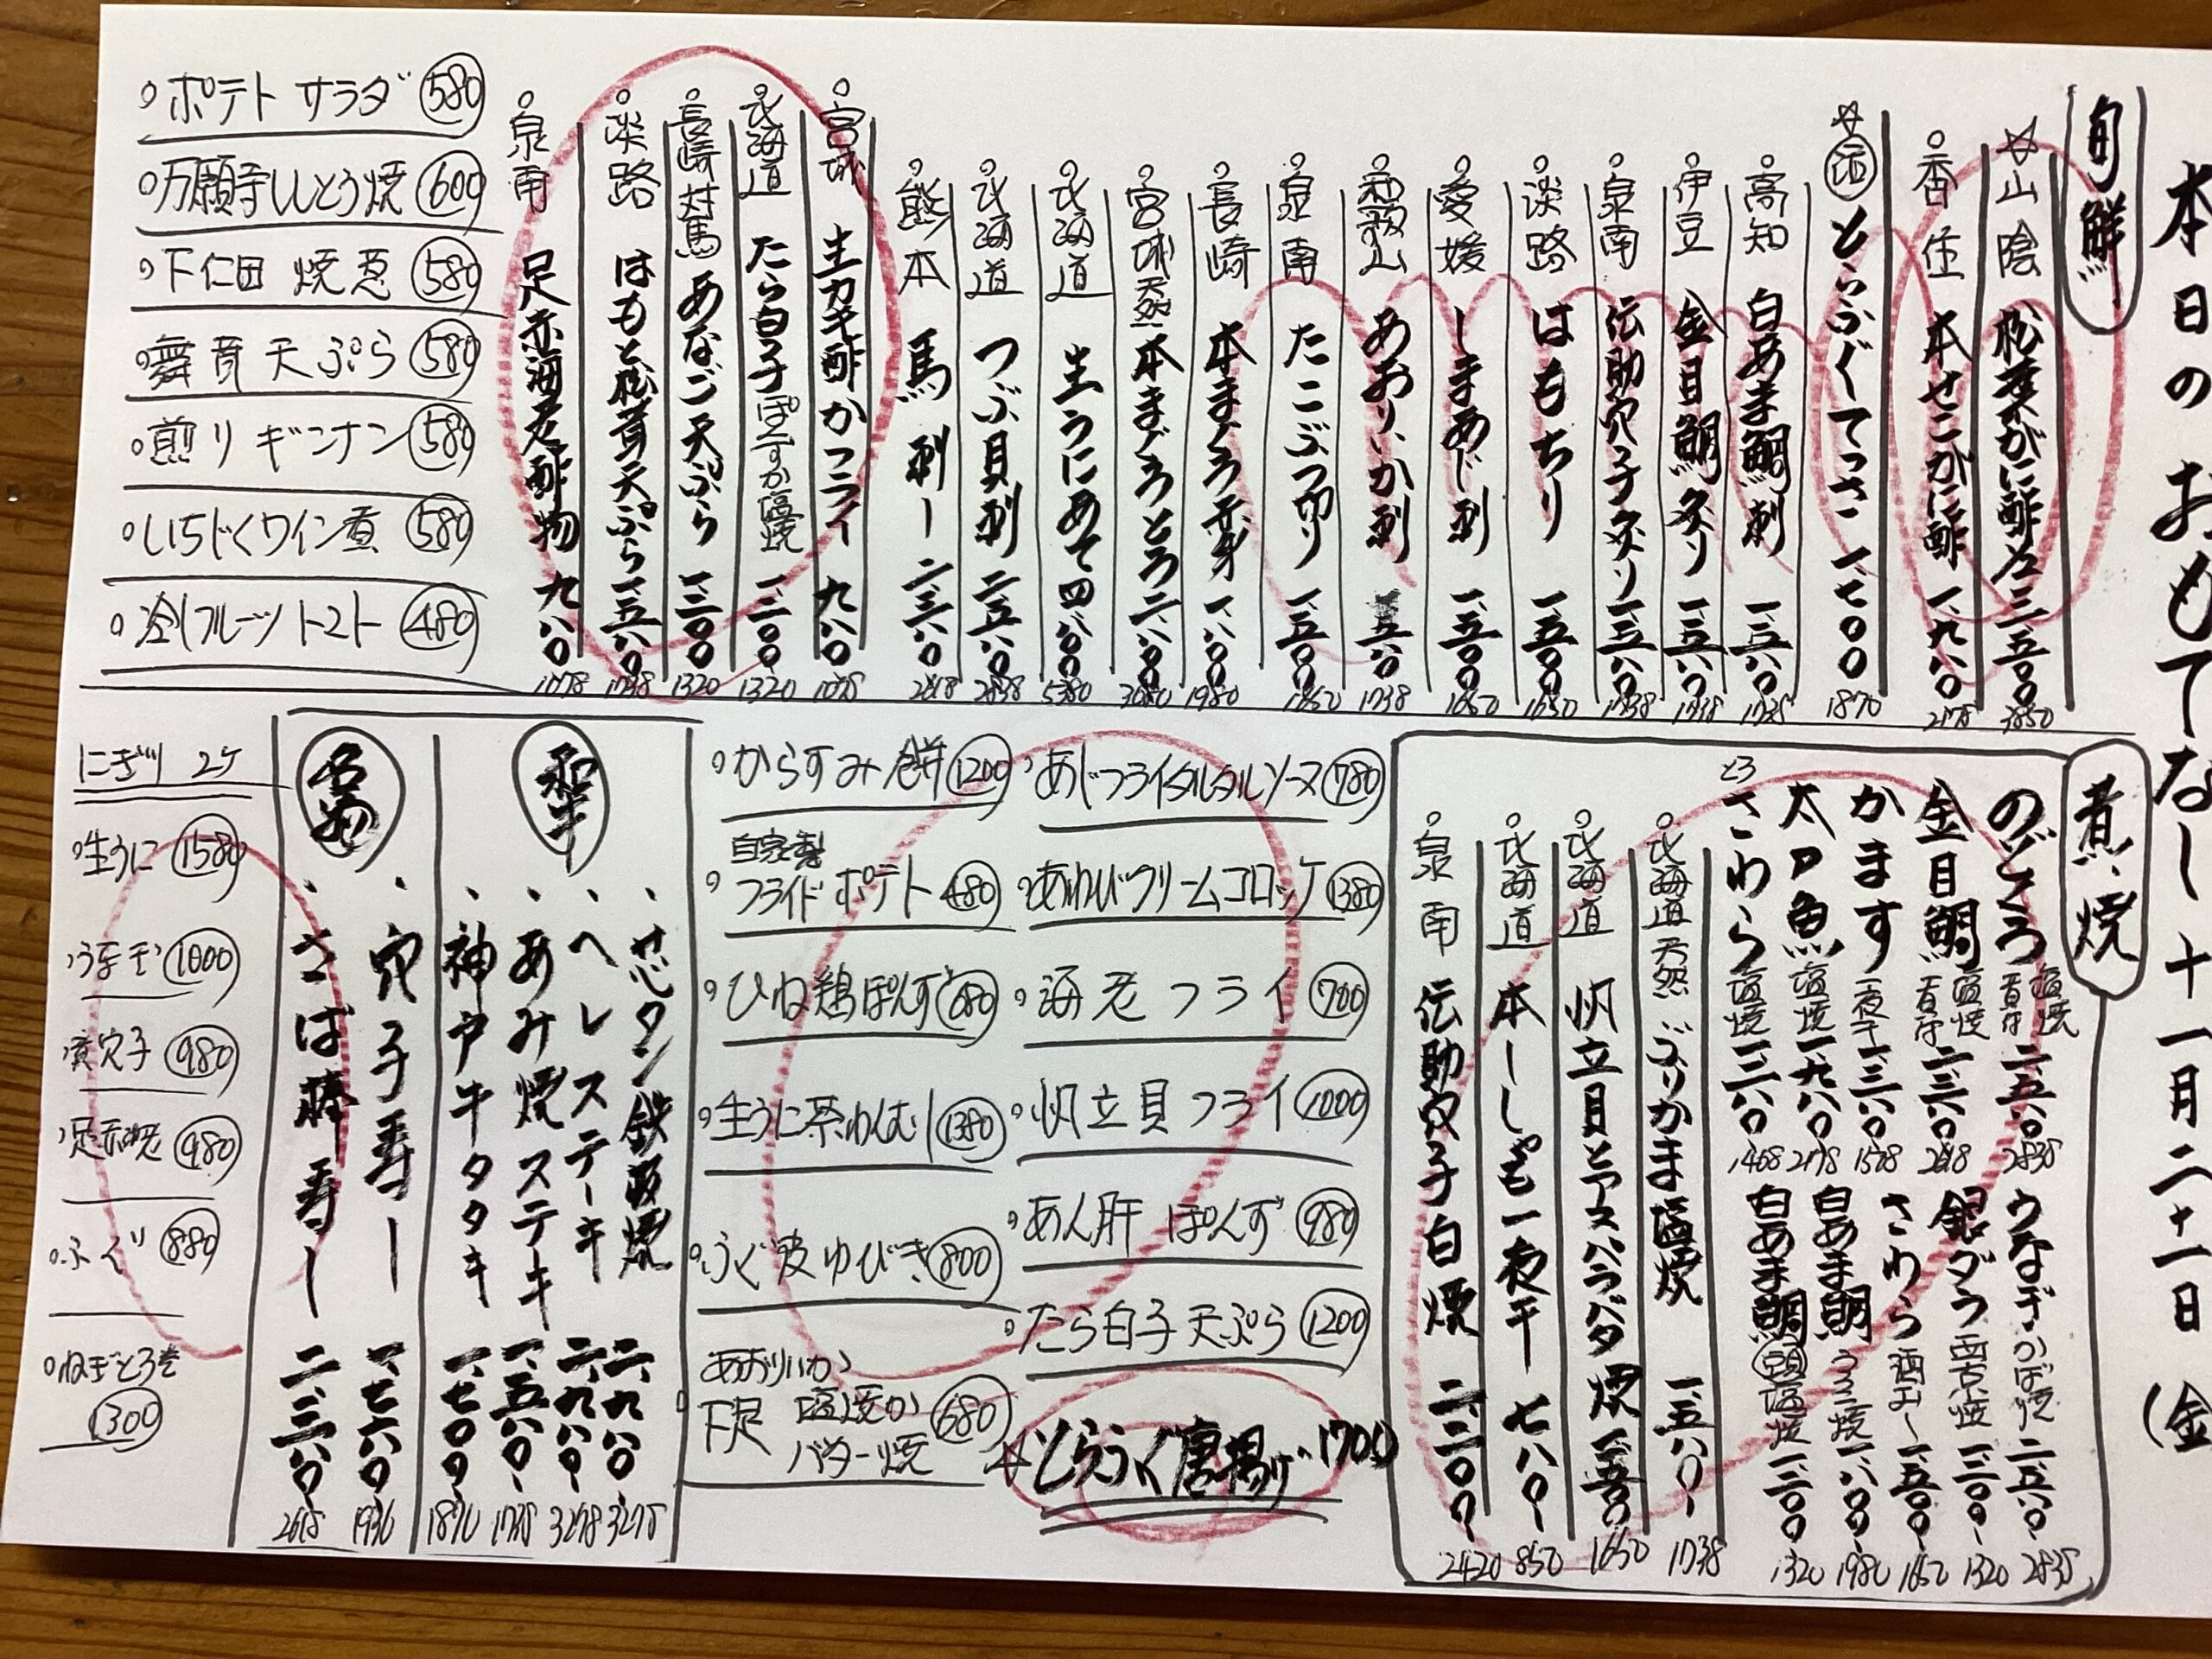 本日のおもてなし 十一月二十一日(金
旬鮮
☆山陰 松葉がに酢 三、五〇〇 3850
香住 本せこがに酢 一、九八〇 2178
☆活 とらふぐてっさ 一、七〇〇 1870
高知 白あま鯛刺 一、五八〇 1738
伊豆 金目鯛炙り 一、五八〇 1738
泉南 伝助穴子炙り 一、五八〇 1738
淡路 はもちり 一、五〇〇 1650
愛媛 しまあじ刺 一、五〇〇 1650
和歌山 あおりいか刺 一、五八〇 1738
泉南 たこぶつ切り 一、五〇〇 1650
長崎 本まぐろ赤身 一、八〇〇 1980
宮城天然 本まぐろとろ 二、八〇〇 3080
北海道 生うにあて 四、八〇〇 5280
北海道 つぶ貝刺 二、五八〇 2838
熊本 馬刺し 二、三八〇 2618
宮城 生カキ酢かフライ 九八〇 1078
北海道 たら白子ぽんずか塩焼 一、二〇〇 1320
長崎対馬 あなご天ぷら 一、二〇〇 1320
淡路 はもと松茸天ぷら 一、五八〇 1738
泉南 足赤海老酢物 九八〇 1078
ポテトサラダ 580
万願寺ししとう焼 600
下仁田 焼葱 580
舞茸天ぷら 580
煎りギンナン 580
いちじくワイン煮 580
冷しフルーツトマト 480
煮、焼
のどぐろ 塩焼 煮付 二、五八〇 2838
金目鯛 塩焼 煮付 二、三八〇 2618
かます 一夜干 一、三八〇 1518
太刀魚 塩焼 一、九八〇 2178
とろ さわら 塩焼 一、二八〇 1408
うなぎ かば焼 二、五八〇 2838
銀ダラ 西京焼 一、二〇〇 1320
さわら 酒むし 一、五〇〇 1650
白あま鯛 うろこ焼 一、八〇〇 1980
白あま鯛 頭 塩焼 一、二〇〇 1320
北海道天然 ぶりかま塩焼 一、五八〇 1738
北海道 帆立貝とアスパラバタ焼 一、五〇〇 1650
北海道 本ししゃも一夜干 七八〇
泉南 伝助穴子白焼 二、二〇〇 2420
あじフライタルタルソース 780
あわびクリームコロッケ 1380
海老フライ 700
帆立貝フライ 1000
あん肝ぽんず 980
たら白子天ぷら 1200
☆とらふぐ唐揚げ 1700
からすみ餅 1200
自家製 フライドポテト 480
ひね鶏ぽんず 680
生うに茶わんむし 1380
ふぐ皮ゆびき 800
あおりいか 下足 塩焼か バター焼 680
和牛
芯タン鉄板焼 二、九八〇 3278
ヘレステーキ 二、九八〇 3278
あみ焼ステーキ 一、五八〇 1738
神戸牛タタキ 一、七〇〇 1870
名物
穴子寿し 一、七六〇 1936
さば棒寿し 二、三八〇 2618
にぎり 2ケ
生うに 1580
うなぎ 1000
煮穴子 980
足赤海老 980
ふぐ 880
ねぎとろ巻 1300